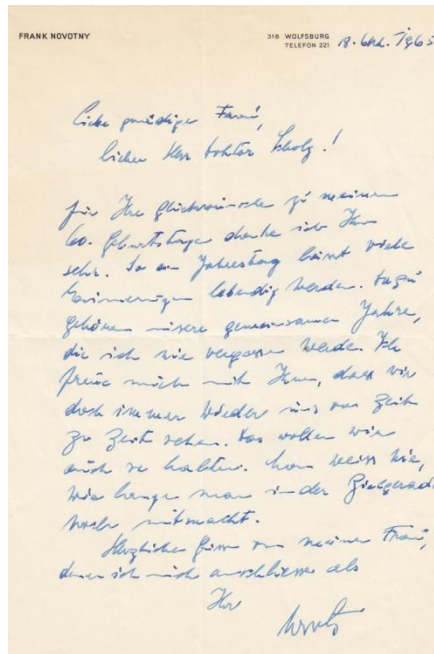 FRANK NOVOTNY
318 WOLFSBURG
TELEFON 221
18. Okt. 1965
Liebe gnädige Frau,
lieber Herr Doktor Scholz!
für Ihre Glückwünsche zu meinem
60. Geburtstage danke ich Ihnen
sehr. So ein Jahrestag lässt viele
Erinnerungen lebendig werden. Dazu
gehören unsere gemeinsamen Jahre,
die ich nie vergessen werde. Ich
freue mich mit Ihnen, dass wir
doch immer wieder uns von Zeit
zu Zeit sehen. Das wollen wir
auch so halten. Man weiss nie,
wie lange man in der Zielgerade
noch mitmacht.
Herzliche Grüsse von meiner Frau,
denen ich mich anschliesse als
Ihr
Novotny